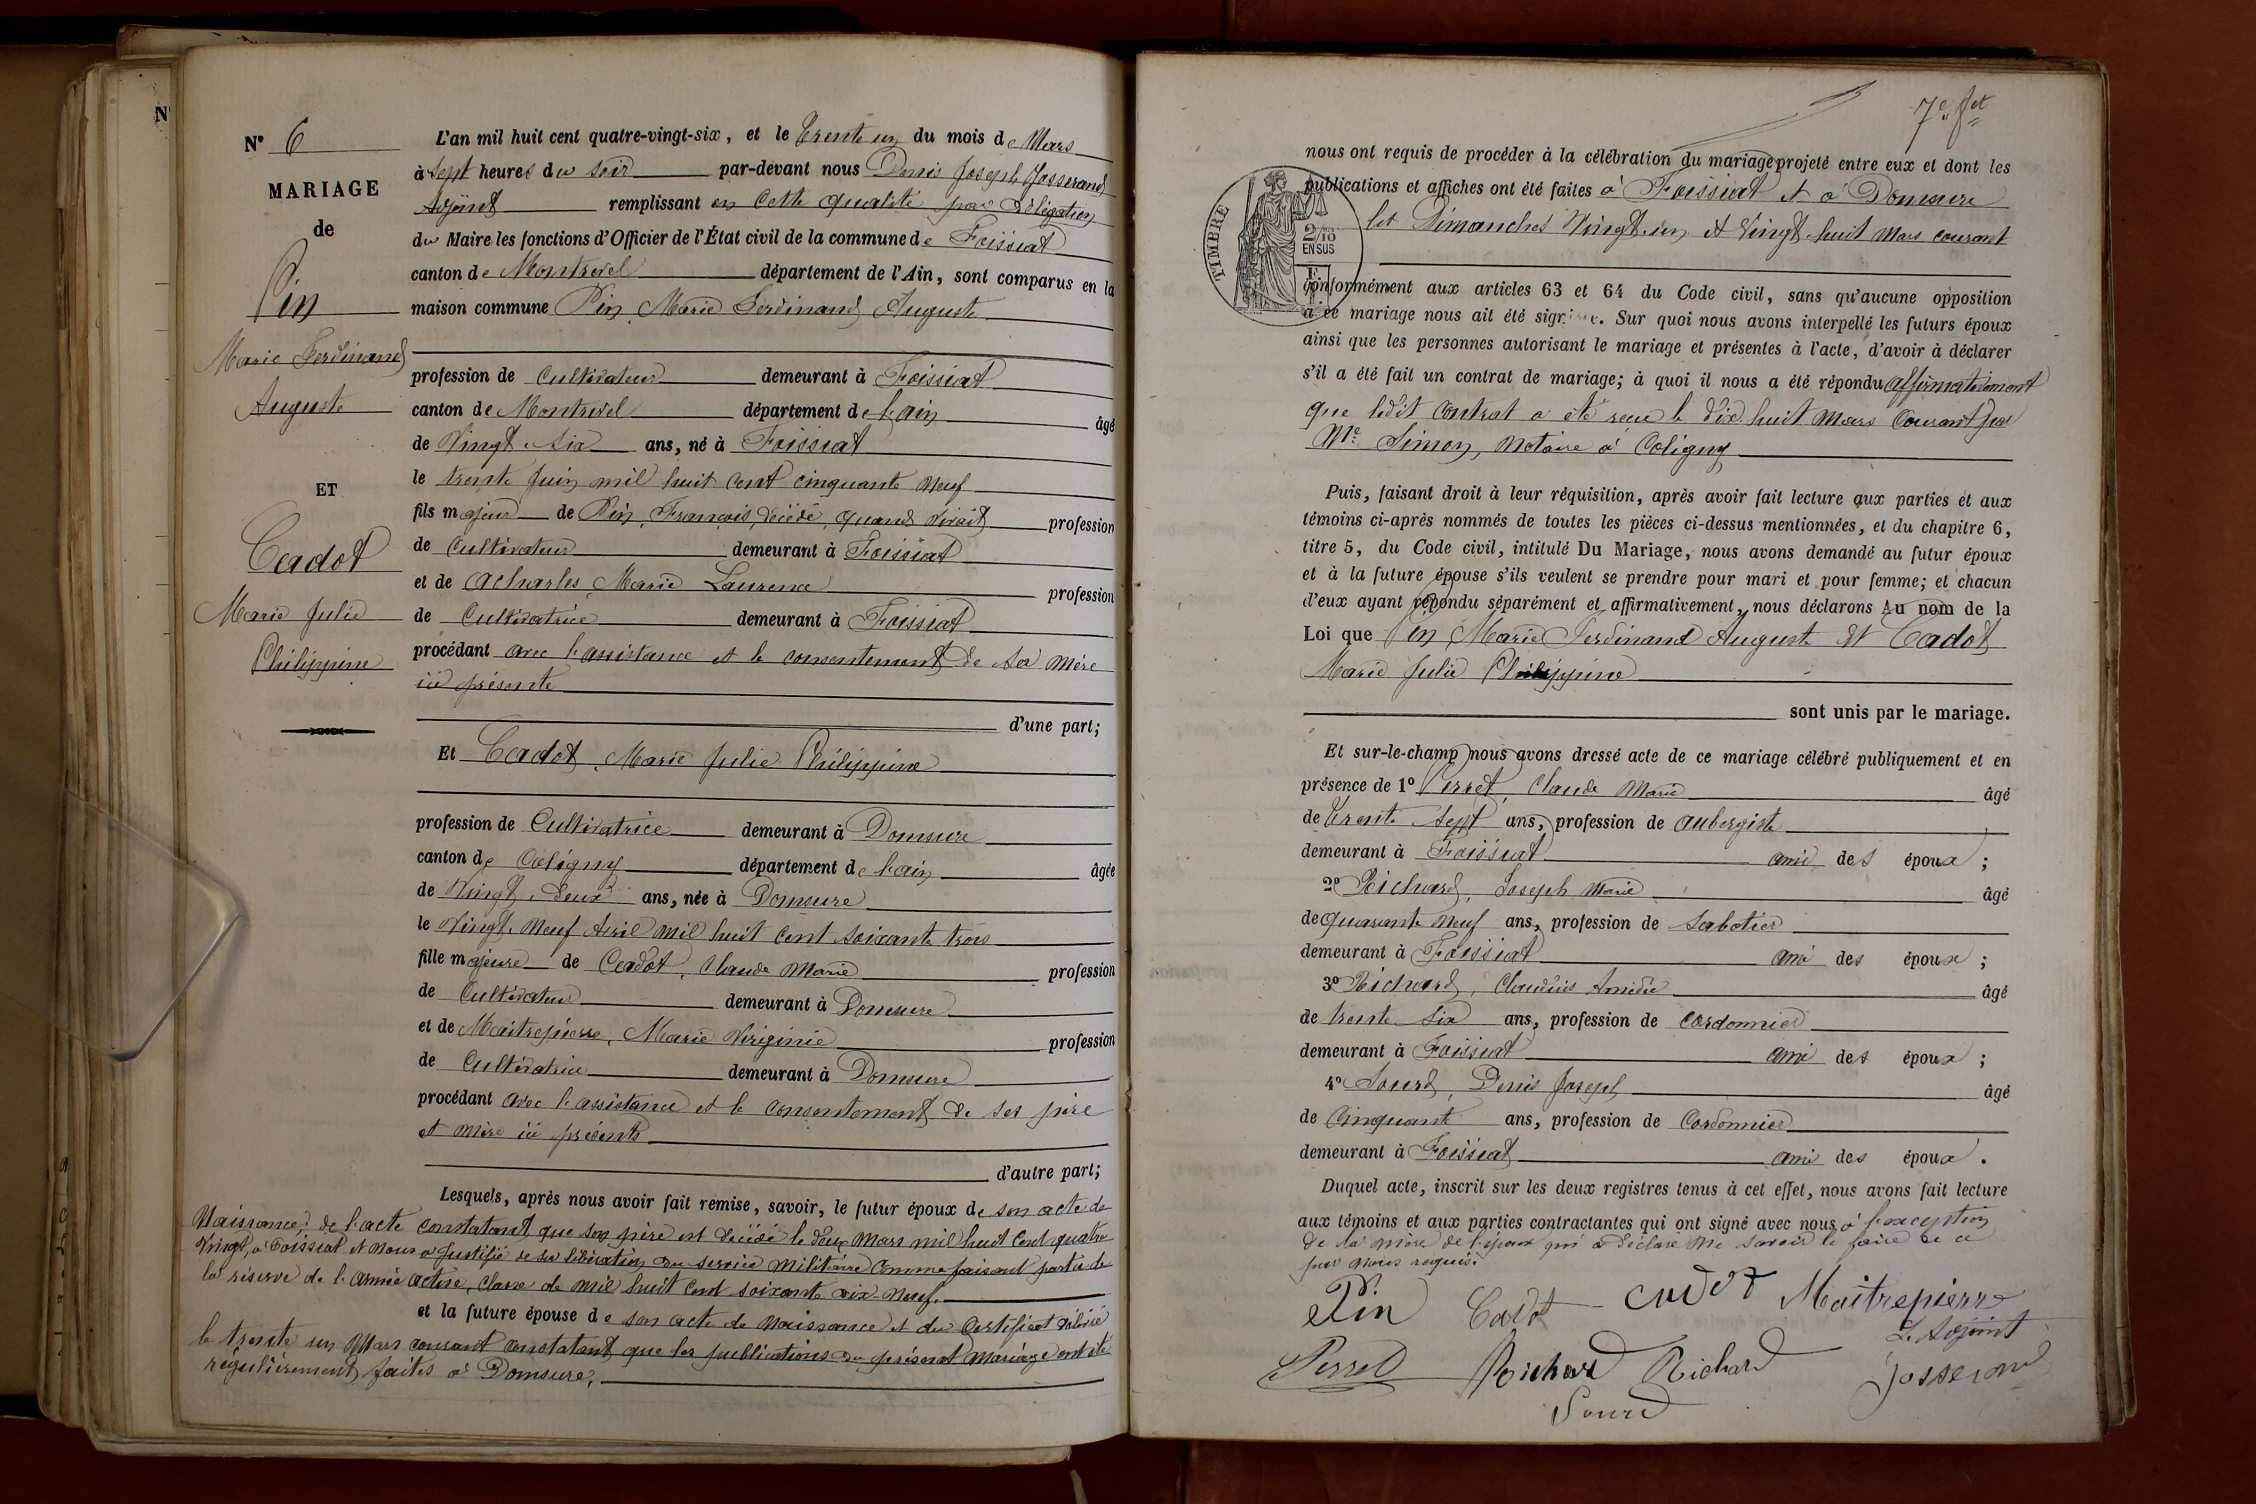 N° 6
MARIAGE
de
Pin
Marie Ferdinand
Auguste
ET
Cadot
Marie Julie
Philippine
L'an mil huit cent quatre-vingt-six, et le trente un du mois de Mars
à sept heures du soir par-devant nous Denis Joseph Josserand
Adjoint remplissant en cette qualité par délégation
du Maire les fonctions d'Officier de l'État civil de la commune de Foissiat
canton de Montrevel département de l'Ain, sont comparus en la
maison commune Pin, Marie Ferdinand Auguste
profession de Cultivateur demeurant à Foissiat
canton de Montrevel département de l'ain âgé
de Vingt Six ans, né à Foissiat
le trente Juin mil huit cent cinquante neuf
fils majeur de Pin, François, décédé, quand vivait profession
de Cultivateur demeurant à Foissiat
et de Acharles, Marie Laurence profession
de Cultivatrice demeurant à Foissiat
procédant avec l'assistance et le consentement de sa mère
ici présente
d'une part;
Et Cadot, Marie Julie Philippine
profession de Cultivatrice demeurant à Domsure
canton de Coligny département de l'ain âgée
de Vingt deux ans, née à Domsure
le Vingt Neuf Avril mil huit cent soixante trois
fille majeure de Cadot, Claude Marie profession
de Cultivateur demeurant à Domsure
et de Maitrepierre, Marie Virginie profession
de Cultivatrice demeurant à Domsure
procédant avec l'assistance et le consentement de ses père
et mère ici présents
d'autre part;
Lesquels, après nous avoir fait remise, savoir, le futur époux de son acte de
Naissance, de l'acte constatant que son père est décédé le deux Mars mil huit cent quatre
Vingt, à Foissiat et Nous a justifié de sa libération du service militaire comme faisant partie de
la réserve de l'armée active, classe de mil huit cent soixante dix-neuf.
et la future épouse de son acte de Naissance et du Certificat délivré
le trente un Mars courant constatant que les publications du présent mariage ont été
régulièrement faites à Domsure.
7e fet
TIMBRE
2/10
EN SUS
nous ont requis de procéder à la célébration du mariage projeté entre eux et dont les
publications et affiches ont été faites à Foissiat et à Domsure
les Dimanches Vingt-un et Vingt-huit Mars courant
conformément aux articles 63 et 64 du Code civil, sans qu'aucune opposition
à ce mariage nous ait été signifiée. Sur quoi nous avons interpellé les futurs époux
ainsi que les personnes autorisant le mariage et présentes à l'acte, d'avoir à déclarer
s'il a été fait un contrat de mariage; à quoi il nous a été répondu affirmativement
que ledit contrat a été reçu le dix huit Mars Courant par
Me Simon, Notaire à Coligny
Puis, faisant droit à leur réquisition, après avoir fait lecture aux parties et aux
témoins ci-après nommés de toutes les pièces ci-dessus mentionnées, et du chapitre 6,
titre 5, du Code civil, intitulé Du Mariage, nous avons demandé au futur époux
et à la future épouse s'ils veulent se prendre pour mari et pour femme; et chacun
d'eux ayant répondu séparément et affirmativement, nous déclarons Au nom de la
Loi que Pin, Marie Ferdinand Auguste Et Cadot
Marie Julie Philippine
sont unis par le mariage.
Et sur-le-champ nous avons dressé acte de ce mariage célébré publiquement et en
présence de 1° Perret, Claude Marie âgé
de trente Sept ans, profession de aubergiste
demeurant à Foissiat ami des époux ;
2° Richard, Joseph Marie âgé
de quarante neuf ans, profession de Sabotier
demeurant à Foissiat ami des époux ;
3° Richard, Claudius Amédée âgé
de trente Six ans, profession de Cordonnier
demeurant à Foissiat ami des époux ;
4° Sourd, Denis Joseph âgé
de Cinquante ans, profession de Cordonnier
demeurant à Foissiat ami des époux .
Duquel acte, inscrit sur les deux registres tenus à cet effet, nous avons fait lecture
aux témoins et aux parties contractantes qui ont signé avec nous à l'exception
de la mère de l'époux qui a déclaré ne savoir le faire de ce
par nous requise.
Pin Cadot Cadot Maitrepierre
L'Adjoint
Perret Richard Richard Josserand
Sourd